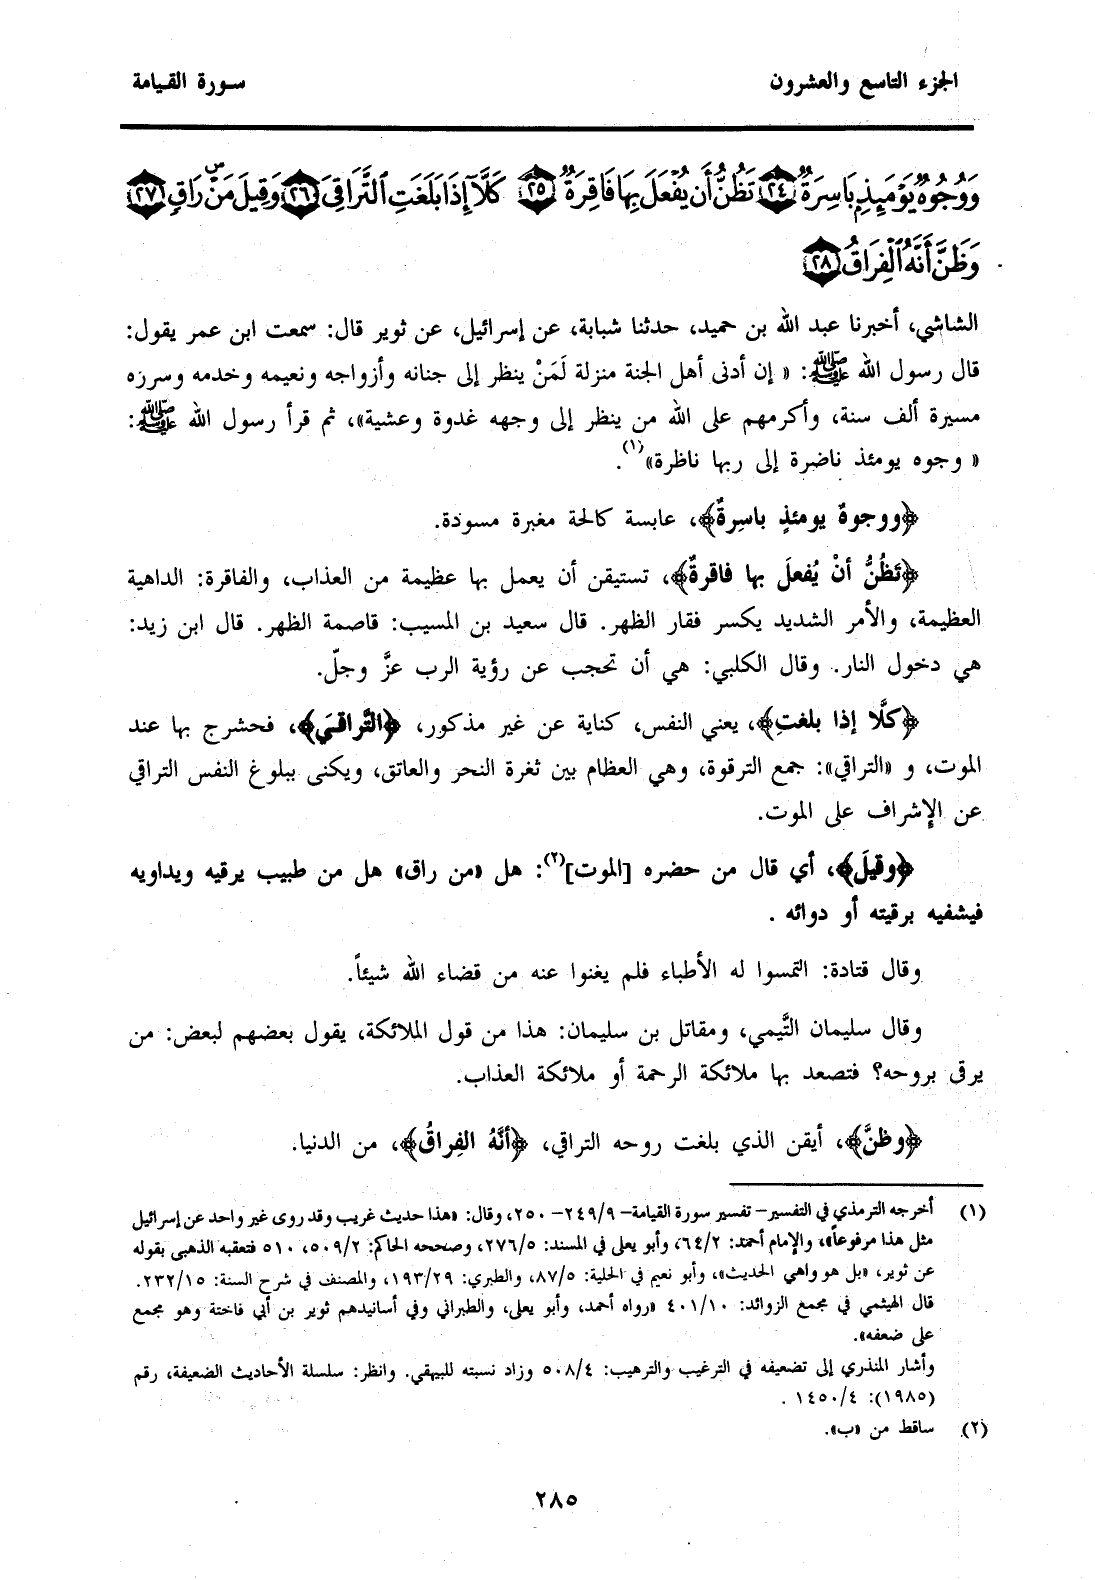 الجزء التاسع والعشرون
سورة القيامة
وَوُجُوهٌ يَوْمَئِذٍ بَاسِرَةٌ ٢٤ تَظُنُّ أَن يُفْعَلَ بِهَا فَاقِرَةٌ ٢٥ كَلَّا إِذَا بَلَغَتِ ٱلتَّرَاقِىَ ٢٦ وَقِيلَ مَنْ ۜ رَاقٍ ٢٧
وَظَنَّ أَنَّهُ ٱلْفِرَاقُ ٢٨
الشاشي، أخبرنا عبد الله بن حميد، حدثنا شبابة، عن إسرائيل، عن ثوير قال: سمعت ابن عمر يقول:
قال رسول الله ﷺ: « إن أدنى أهل الجنة منزلة لَمَنْ ينظر إلى جنانه وأزواجه ونعيمه وخدمه وسرره
مسيرة ألف سنة، وأكرمهم على الله من ينظر إلى وجهه غدوة وعشية»، ثم قرأ رسول الله ﷺ:
« وجوه يومئذ ناضرة إلى ربها ناظرة»(١).
﴿ووجوهٌ يومئذٍ باسِرةٌ﴾، عابسة كالحة مغبرة مسودة.
﴿تَظُنُّ أنْ يُفعلَ بها فاقرةٌ﴾، تستيقن أن يعمل بها عظيمة من العذاب، والفاقرة: الداهية
العظيمة، والأمر الشديد يكسر فقار الظهر. قال سعيد بن المسيب: قاصمة الظهر. قال ابن زيد:
هي دخول النار. وقال الكلبي: هي أن تحجب عن رؤية الرب عزَّ وجلّ.
﴿كلَّا إذا بلغتِ﴾، يعني النفس، كناية عن غير مذكور، ﴿التَّراقيَ﴾، فحشرج بها عند
الموت، و «التراقي»: جمع الترقوة، وهي العظام بين ثغرة النحر والعاتق، ويكنى ببلوغ النفس التراقي
عن الإشراف على الموت.
﴿وقيلَ﴾، أي قال من حضره [الموت](٢): هل «من راق» هل من طبيب يرقيه ويداويه
فيشفيه برقيته أو دوائه .
وقال قتادة: التمسوا له الأطباء فلم يغنوا عنه من قضاء الله شيئاً.
وقال سليمان التَّيمي، ومقاتل بن سليمان: هذا من قول الملائكة، يقول بعضهم لبعض: من
يرقى بروحه؟ فتصعد بها ملائكة الرحمة أو ملائكة العذاب.
﴿وظنَّ﴾، أيقن الذي بلغت روحه التراقي، ﴿أنَّهُ الفِراقُ﴾، من الدنيا.
(١) أخرجه الترمذي في التفسير– تفسير سورة القيامة– ٢٤٩/٩– ٢٥٠، وقال: «هذا حديث غريب وقد روى غير واحد عن إسرائيل
مثل هذا مرفوعاً»، والإمام أحمد: ٦٤/٢، وأبو يعلى في المسند: ٢٧٦/٥، وصححه الحاكم: ٥٠٩/٢، ٥١٠ فتعقبه الذهبي بقوله
عن ثوير، «بل هو واهي الحديث»، وأبو نعيم في الحلية: ٨٧/٥، والطبري: ١٩٣/٢٩، والمصنف في شرح السنة: ٢٣٢/١٥.
قال الهيثمي في مجمع الزوائد: ٤٠١/١٠ «رواه أحمد، وأبو يعلى، والطبراني وفي أسانيدهم ثوير بن أبي فاختة وهو مجمع
على ضعفه».
وأشار المنذري إلى تضعيفه في الترغيب والترهيب: ٥٠٨/٤ وزاد نسبته للبيهقي. وانظر: سلسلة الأحاديث الضعيفة، رقم
(١٩٨٥): ١٤٥٠/٤ .
(٢) ساقط من «ب».
٢٨٥